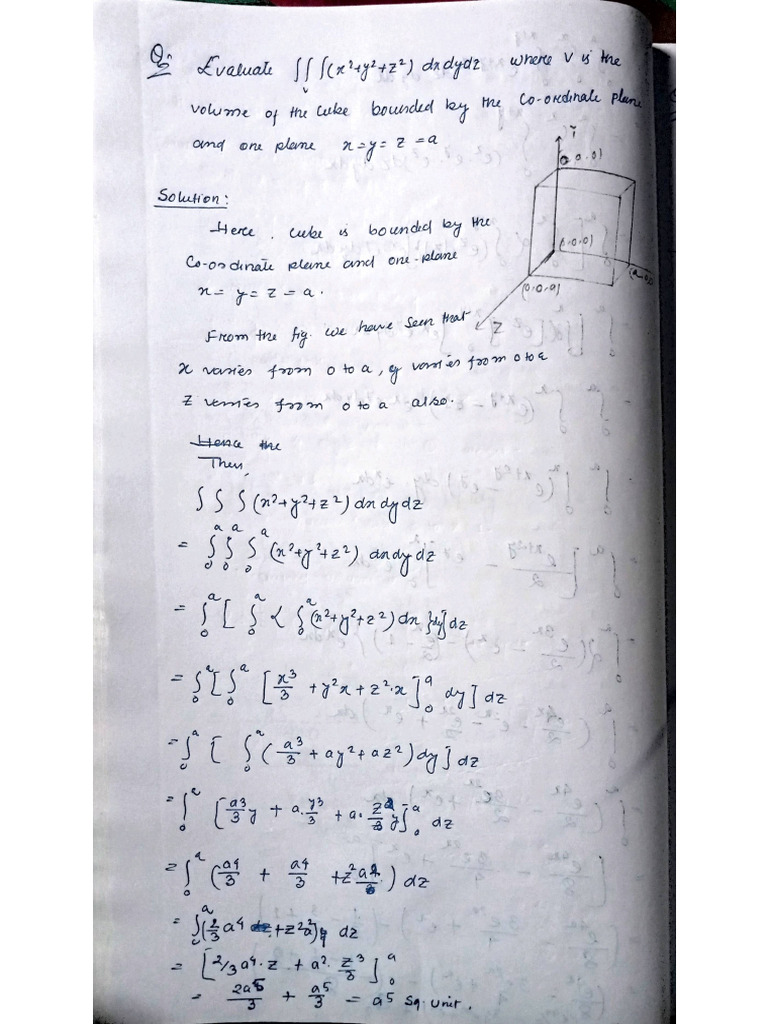 Q: Evaluate ∫∫∫(x²+y²+z²) dxdydz where V is the
V
volume of the cube bounded by the Co-ordinate plane
and one plane x=y=z=a
Y
(0.0)
Solution:
Here, cube is bounded by the
Co-ordinate plane and one-plane
x=y=z=a.
(0.0)
(0.0.a)
Z
From the fig. we have seen that
x varies from 0 to a, y varies from 0 to a
z varies from 0 to a also.
Hence the
Then,
∫∫∫(x²+y²+z²)dxdydz
= ∫₀ᵃ∫₀ᵃ∫₀ᵃ(x²+y²+z²) dxdydz
= ∫₀ᵃ[∫₀ᵃ{∫₀ᵃ(x²+y²+z²)dx}dy]dz
= ∫₀ᵃ[∫₀ᵃ[x³/3 + y²x + z²·x]₀ᵃ dy]dz
= ∫₀ᵃ[∫₀ᵃ(a³/3 + ay² + az²)dy]dz
= ∫₀ᵃ[a³/3 y + a·y³/3 + a·z² y]₀ᵃ dz
= ∫₀ᵃ(a⁴/3 + a⁴/3 + z²a²) dz
= ∫₀ᵃ(2/3 a⁴ + z²a²) dz
= [2/3 a⁴·z + a²·z³/3]₀ᵃ
= 2a⁵/3 + a⁵/3 = a⁵ sq. unit.